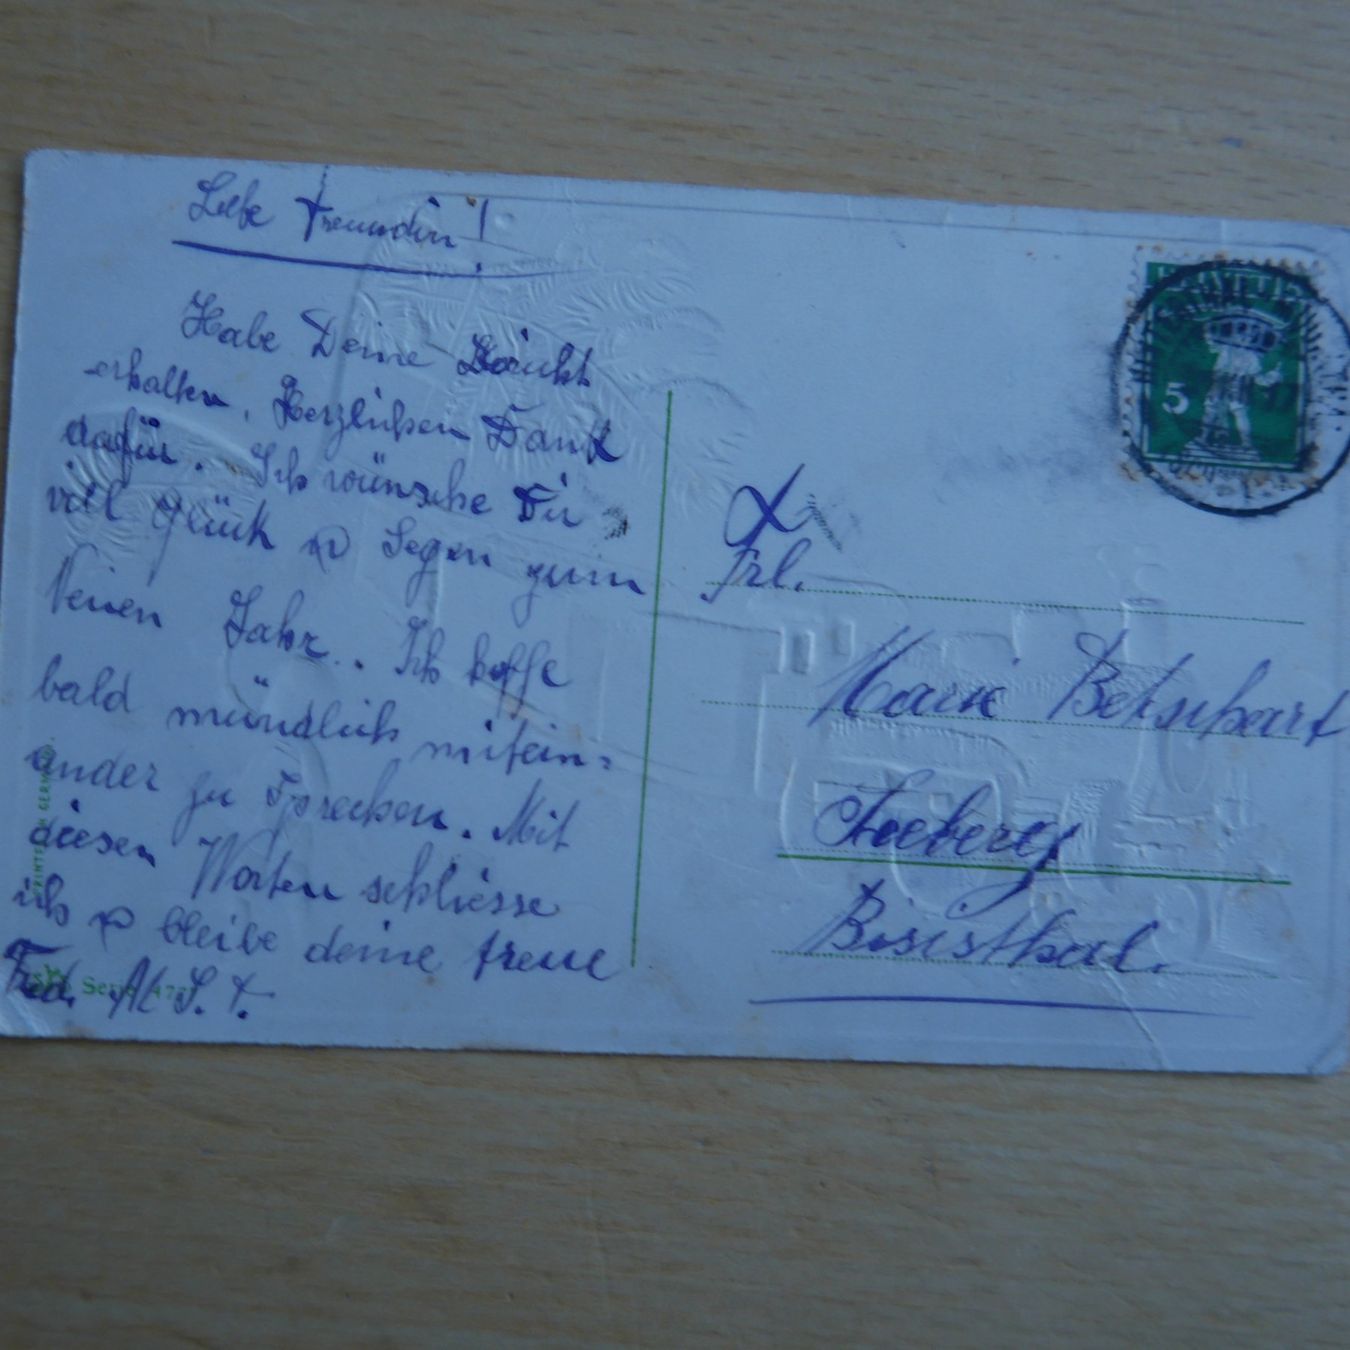 Liebe Freundin!
Habe Deine Bericht
erhalten. Herzlichen Dank
dafür. Ich wünsche Dir
viel Glück & Segen zum
Neuen Jahr.. Ich hoffe
bald mündlich mitein=
ander zu sprechen. Mit
diesen Worten schliesse
ich & bleibe deine treue
Frd. M. S. t.
PRINTED IN GERMANY.
Serie 477
5
Frl.
Marie Betschart
Seeberg
Bisisthal.